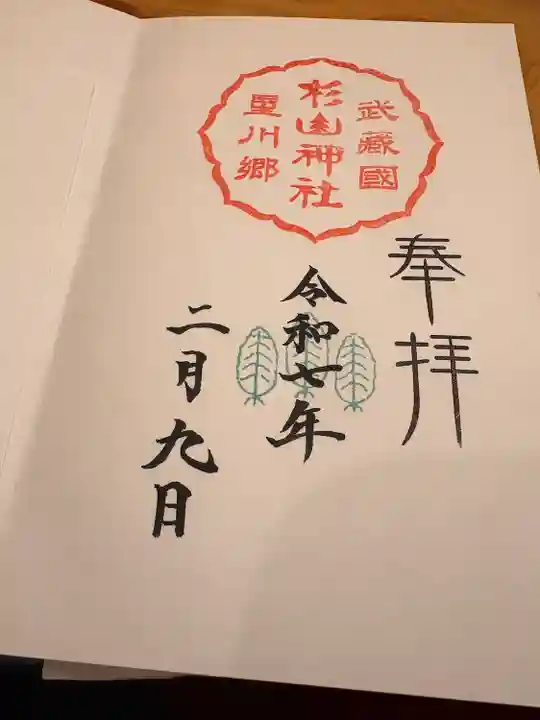 奉拝
武藏國
杉山神社
星川郷
令和七年
二月九日